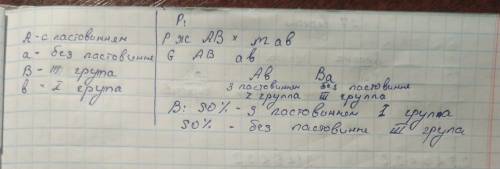 P₁
А - с ластовинням
а - без ластовиння
В - III група
в - I група
P ж АВ × m ав
G АВ ав
Ав Ва
з ластовинням без ластовиння
I группа III группа
В: 50% - з ластовинням I группа
50% - без ластовиння III група